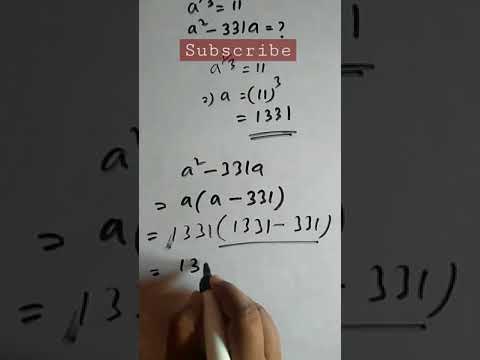 a^1/3 = 11
a² - 331a = ?
Subscribe
a^1/3 = 11
=) a = (11)³
= 1331
a² - 331a
= a(a - 331)
= 1331(1331 - 331)
= 13